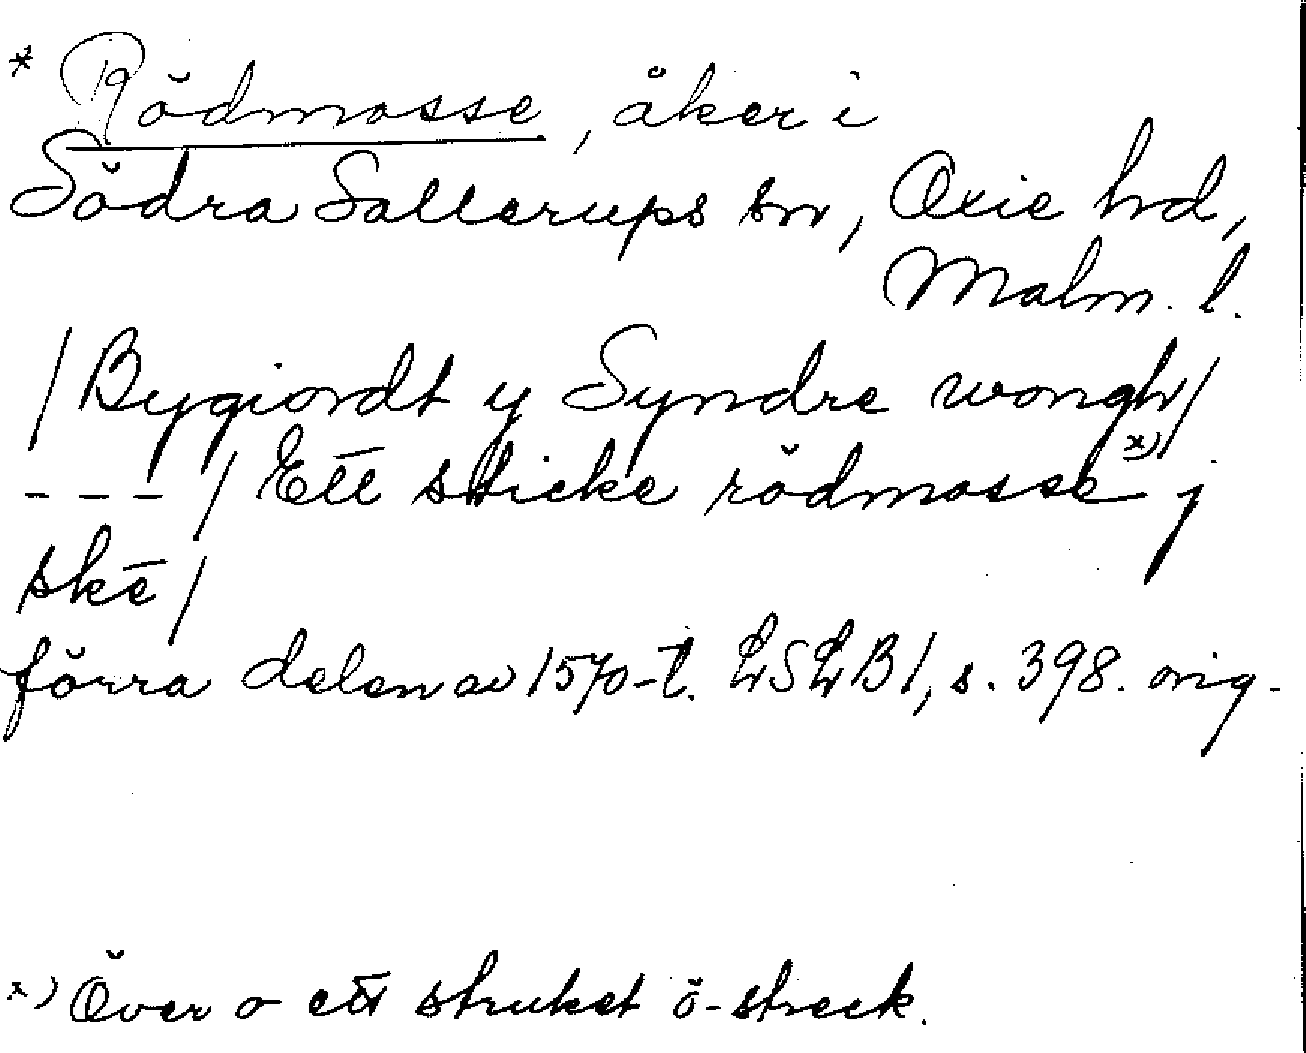 * Rödmosse, åker i
Södra Sallerups sn, Oxie hd,
Malm. l.
/Bygiordt y Syndre wongh/
---/Ett sticke rödmosse x) j
skē/
förra delen av 1570-t. LSLB1, s. 398. orig.
x) Över o ett struket ö-streck.